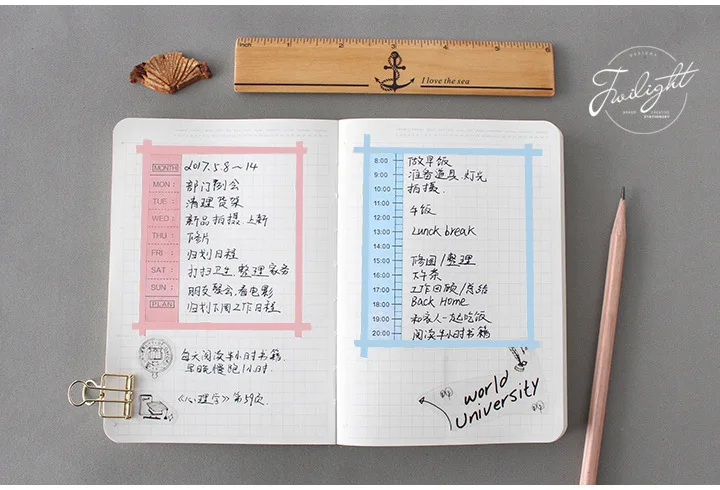 inch 1 2 3 4 5 6
I love the sea
DESIGNS
Twilight
BRAND CREATIVE
STATIONERY
MONTH 2017.5.8~14
MON: 部门例会
TUE: 清理货架
WED: 新品拍摄.上新
THU: 修片
FRI: 归划日程
SAT: 打扫卫生.整理家务
SUN: 朋友聚会,看电影
PLAN 归划下周工作日程
每天阅读半小时书籍.
早晚慢跑1小时.
《心理学》第59页.
8:00 做早饭
9:00 准备道具.灯光
10:00 拍摄.
11:00
12:00 午饭
13:00 Lunck break
14:00
15:00 修图/整理
16:00 下午茶
17:00 工作回顾/总结
18:00 Back Home
19:00 和家人一起吃饭
20:00 阅读半小时书籍
world
University